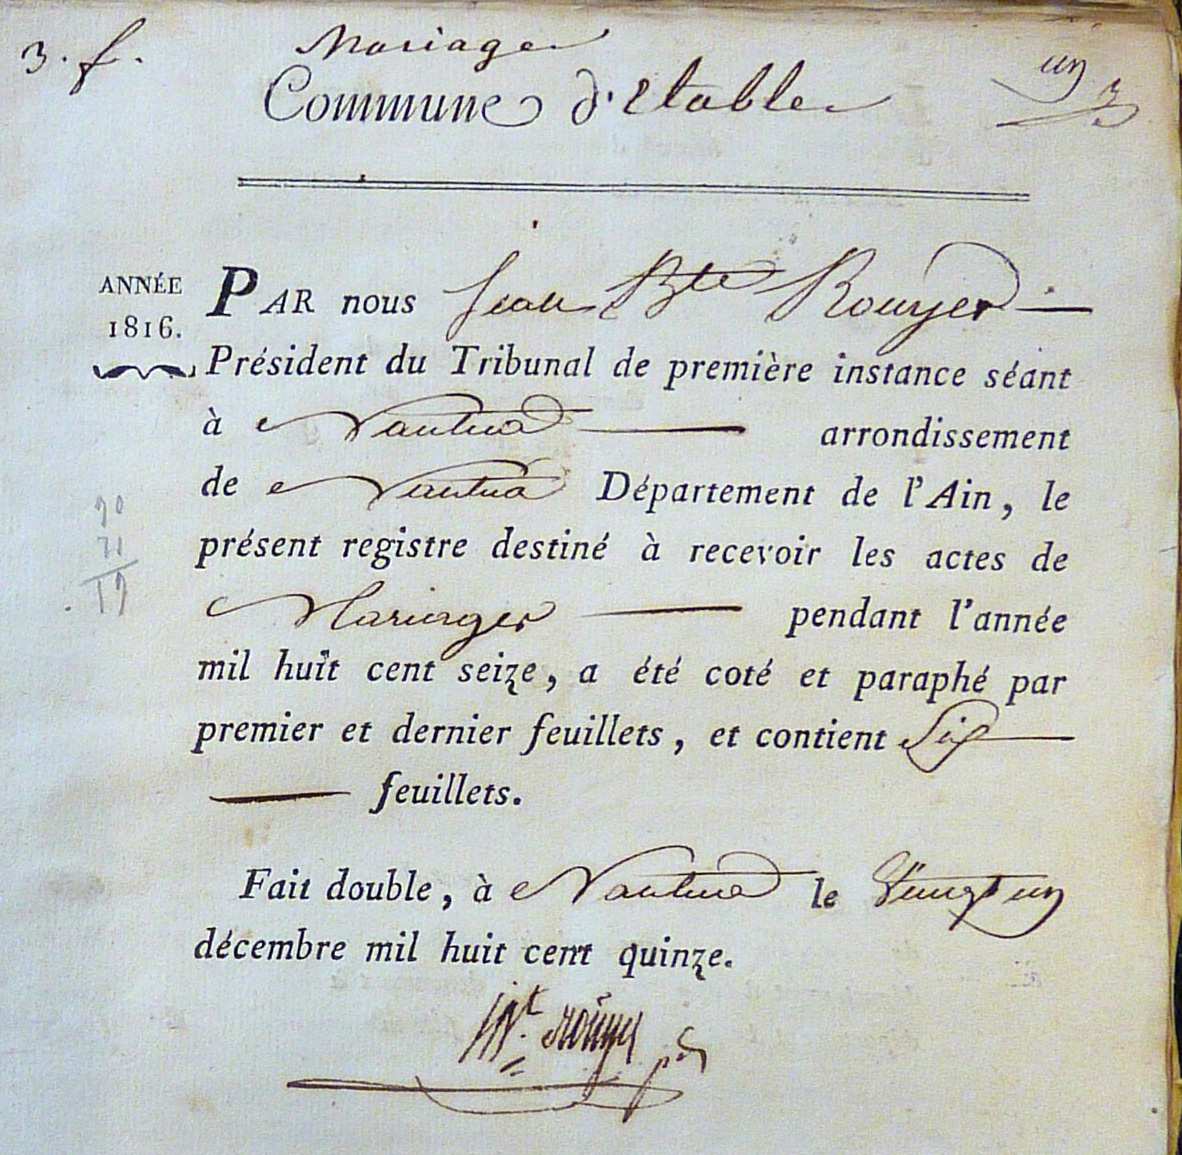 3. f.
Mariages
un
Commune d'Etables
ANNÉE
1816.
PAR nous Jean Bte Rouyer
Président du Tribunal de première instance séant
à Nantua arrondissement
de Nantua Département de l'Ain, le
présent registre destiné à recevoir les actes de
Mariages pendant l'année
mil huit cent seize, a été coté et paraphé par
premier et dernier feuillets, et contient Six
feuillets.
Fait double, à Nantua le Vingt un
décembre mil huit cent quinze.
Bt. rouyer pdt